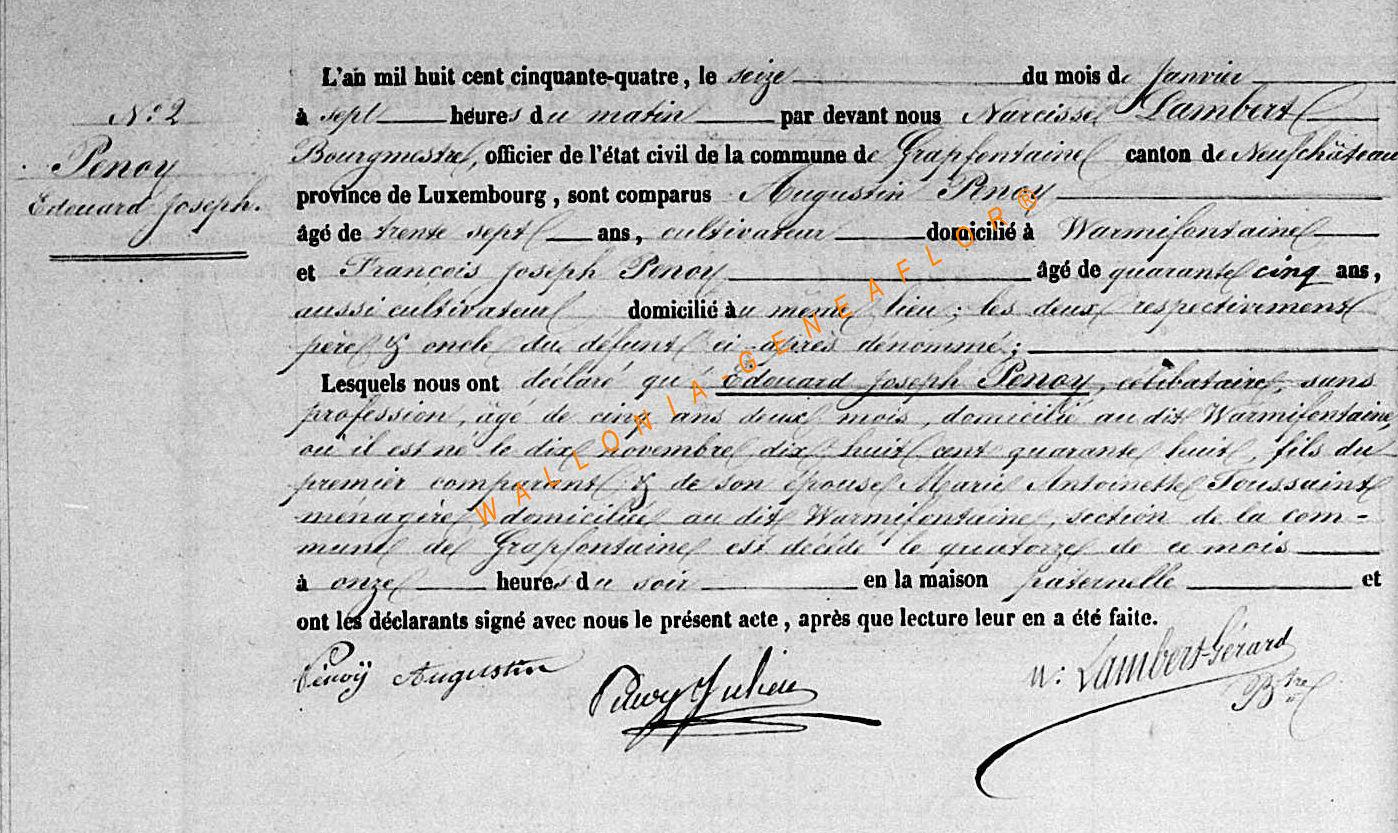 N° 2
Penoy
Edouard Joseph.
L'an mil huit cent cinquante-quatre, le seize du mois de Janvier
à sept heures du matin par devant nous Narcisse Lambert
Bourgmestre, officier de l'état civil de la commune de Grapfontaine canton de Neufchâteau
province de Luxembourg, sont comparus Augustin Penoy
âgé de trente sept ans, cultivateur domicilié à Warmifontaine
et François Joseph Penoy âgé de quarante cinq ans,
aussi cultivateur domicilié au même lieu ; les deux respectivement
père & oncle du défunt ci-après dénommé ;
Lesquels nous ont déclaré qu'Edouard Joseph Penoy, célibataire, sans
profession, âgé de cinq ans deux mois, domicilié au dit Warmifontaine
où il est né le dix novembre dix huit cent quarante huit, fils du
premier comparant & de son épouse Marie Antoinette Toussaint
ménagère, domiciliée au dit Warmifontaine, section de la com-
mune de Grapfontaine est décédé le quatorze de ce mois
à onze heures du soir en la maison paternelle et
ont les déclarants signé avec nous le présent acte, après que lecture leur en a été faite.
Penoÿ Augustin
Penoy Julien
N: Lambert-Gérard
Btre
WALLONIA-GENEAFLOR®